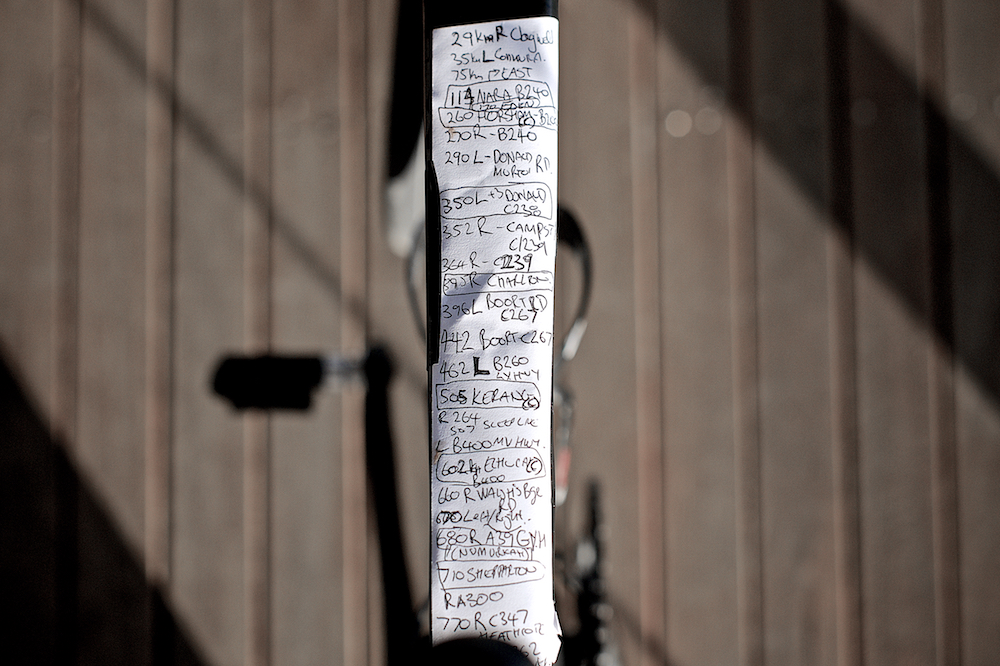 29km R
35km L
75km EAST
114 NARA B240
260 HORSHAM - B240
270 R - B240
290 L - DONALD
MURTOA RD
350 L + 3 DONALD
C238
352 R - CAMP ST
C/239
364 R - C239
390 R CHARLTON
396 L BOORT RD
C267
442 BOORT C267
462 L B260
LV HWY
505 KERANG
R 264
507
L B400 MV HWY.
602 R ECHUCA
B400
660 R WALSH'S Bge
RD
670 Left/Right.
680 R A39 GVH
(NUMURKAH)
710 SHEPPARTON
R A300
770 R C347
HEATHCOTE